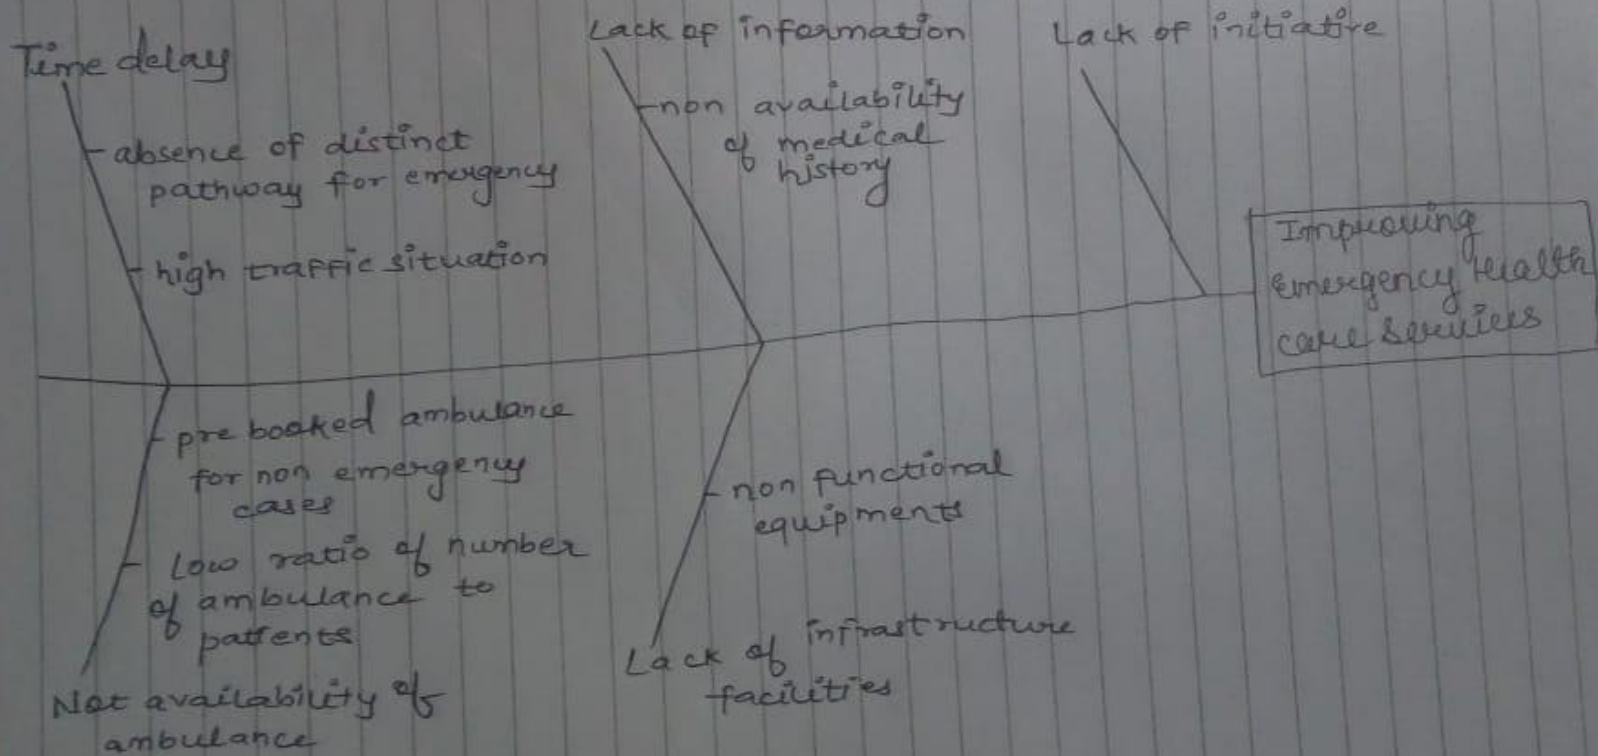 Time delay
absence of distinct
pathway for emergency
high traffic situation
Lack of information
non availability
of medical
history
Lack of initiative
Improving
emergency Health
care Services
pre booked ambulance
for non emergency
cases
Low ratio of number
of ambulance to
patients
Not availability of
ambulance
non functional
equipments
Lack of infrastructure
facilities